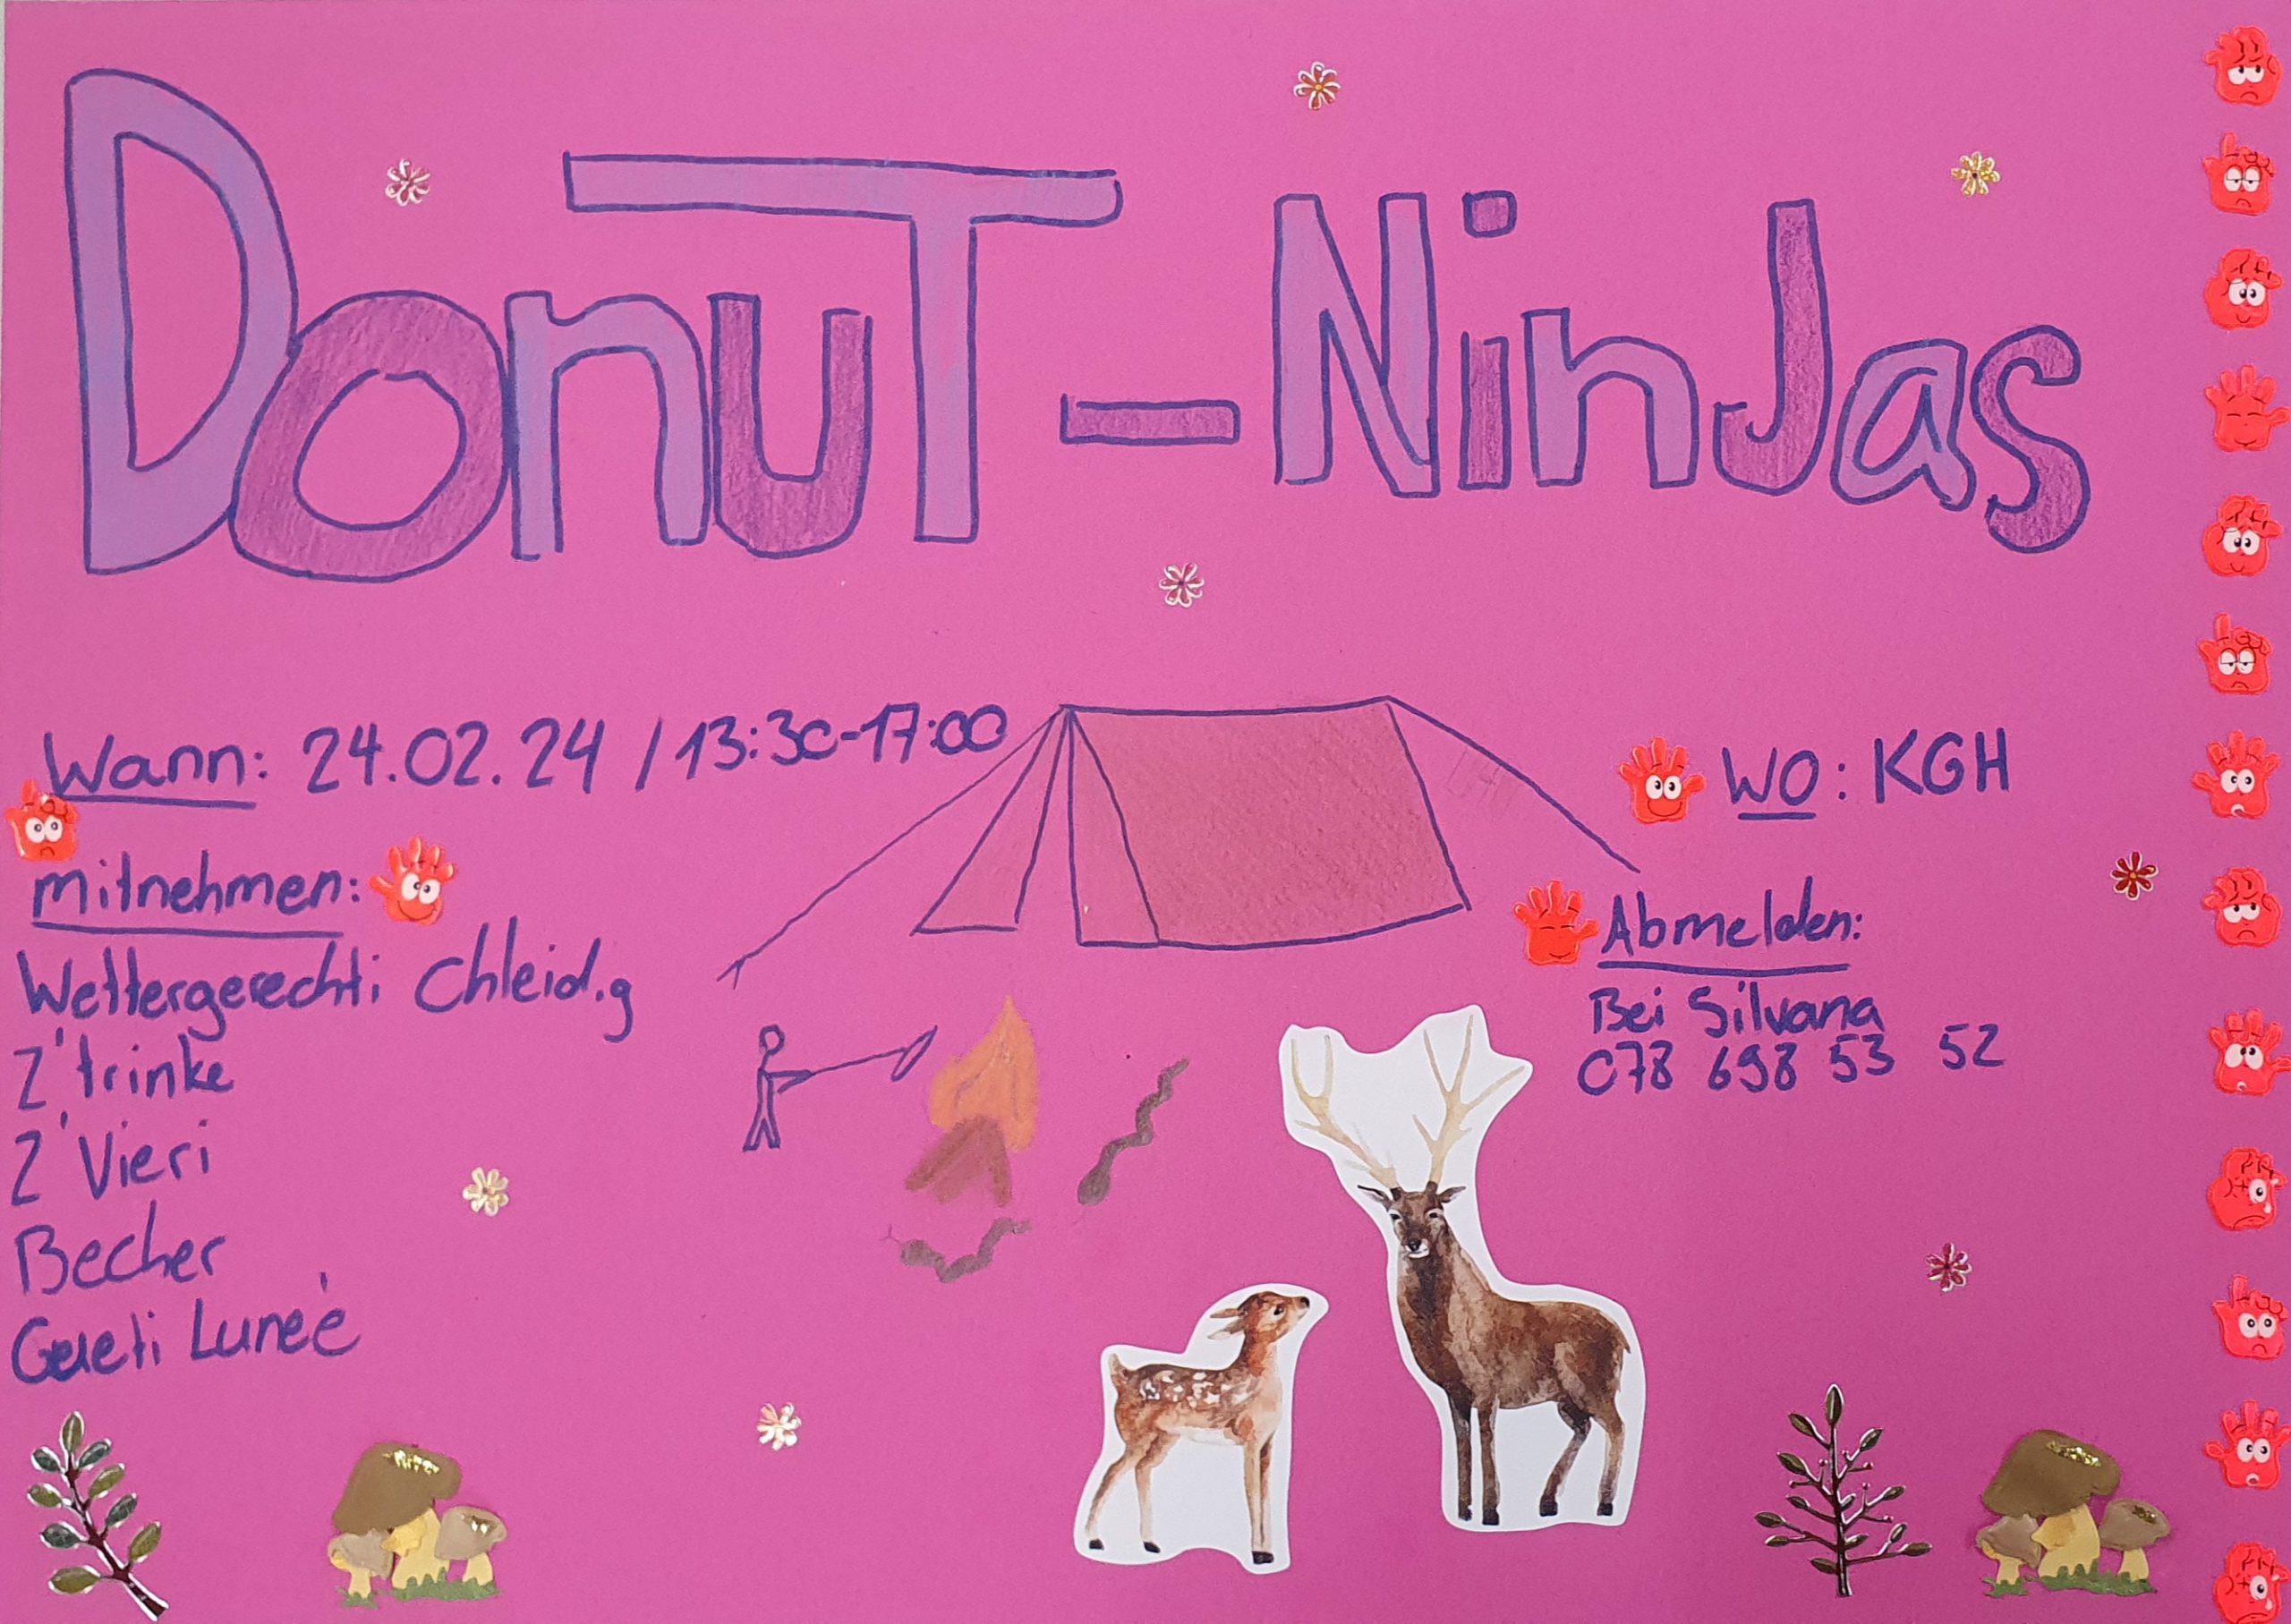 DonuT-NinJas
Wann: 24.02.24 / 13:30-17:00
WO: KGH
mitnehmen:
Wettergerechti Chleidig
Z'trinke
Z'Vieri
Becher
Abmelden:
Bei Silvana
078 698 53 52